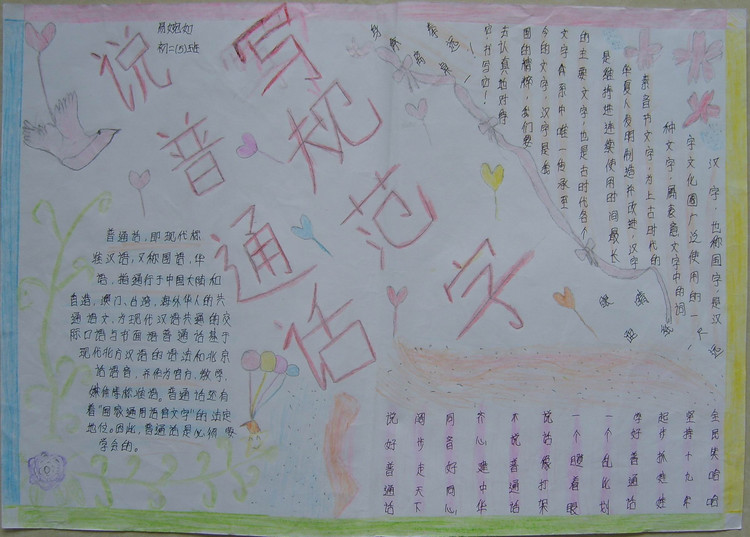 易婉如
初二(5)班
说普通话
写规范字
普通话,即现代标
准汉语,又称国语,华
语,指通行于中国大陆和
香港、澳门、台湾,海外华人的共
通语文,为现代汉语共通的交
际口语与书面语普通话基于
现代北方汉语的语法和北京
话语音,
普通话还有
着"国家通用语言文字"的法定
地位。因此,普通话是必须要
学会的。
汉字,也称国字,是汉
字文化圈广泛使用的一
种文字,属表意文字中的词
素音节文字,为上古时代的
华夏人发明创造并改进,汉字
是维持连续使用时间最长
的主要文字,也是古时代各个
文字体系中唯一传承至
今的文字,汉字是我
国的精粹,我们要
去认真地对待
说好普通话
阔步走天下
同音好同心
齐心建中华
不说普通话
说话像打架
一个瞪着眼
一个乱比划
学好普通话
起步抓娃娃
全民笑哈哈